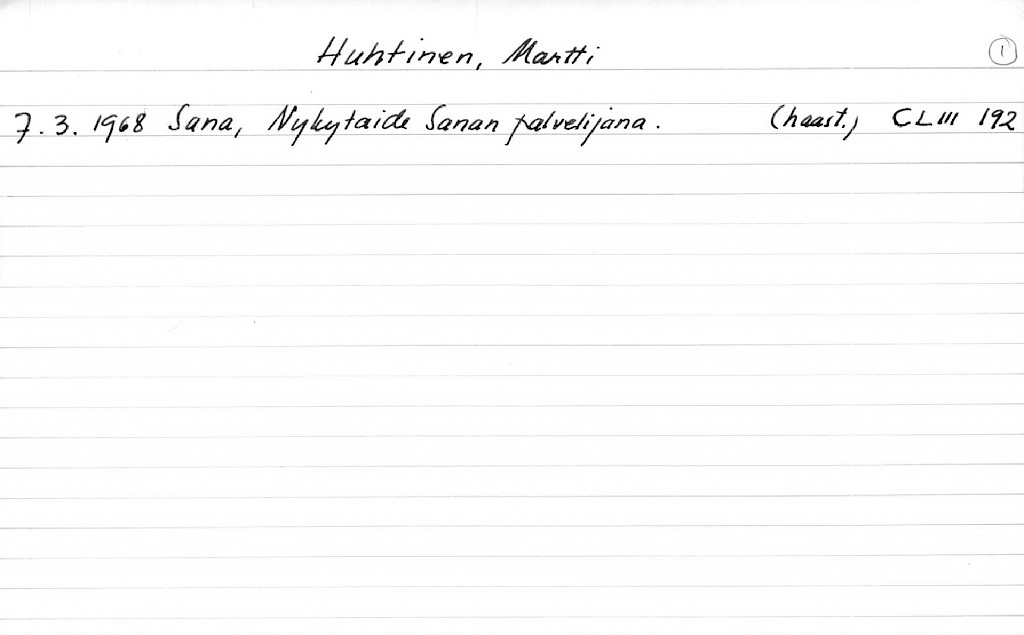 Huhtinen, Martti 1
7.3.1968 Sana, Nykytaide Sanan palvelijana. (haast.) CLIII 192